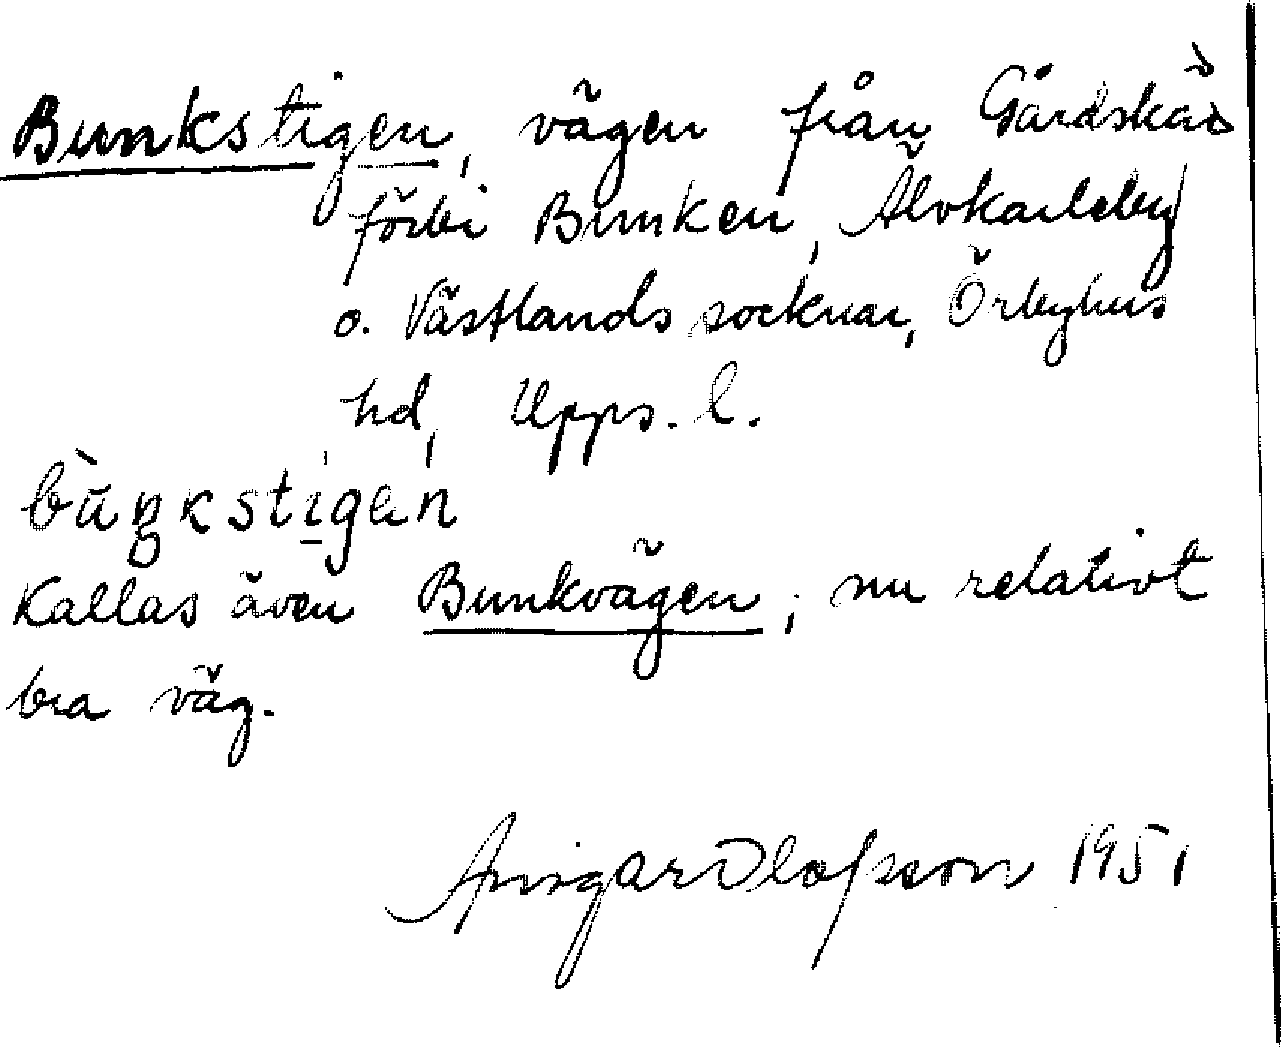 Bunkstigen, vägen från Gårdskär
förbi Bunken, Älvkarleby
o. Västlands socknar, Örbyhus
hd, Upps. l.
bùŋkstigen
Kallas även Bunkvägen; nu relativt
bra väg.
Ansgar Olofsson 1951